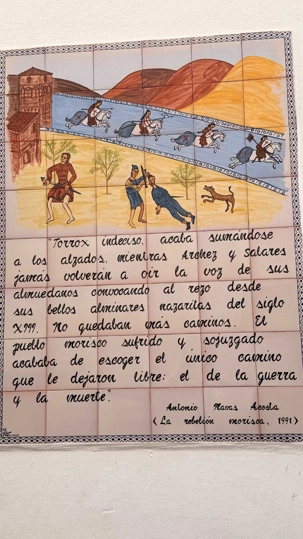 "Torrox indeciso, acaba sumándose
a los alzados, mientras Árchez y Salares
jamás volverán a oir la voz de sus
almuédanos convocando al rezo desde
sus bellos alminares nazaritas del siglo
XIII. No quedaban más caminos. El
pueblo morisco sufrido y sojuzgado
acababa de escoger el único camino
que le dejaron libre: el de la guerra
y la muerte".
Antonio Navas Acosta
(La rebelión morisca, 1991)